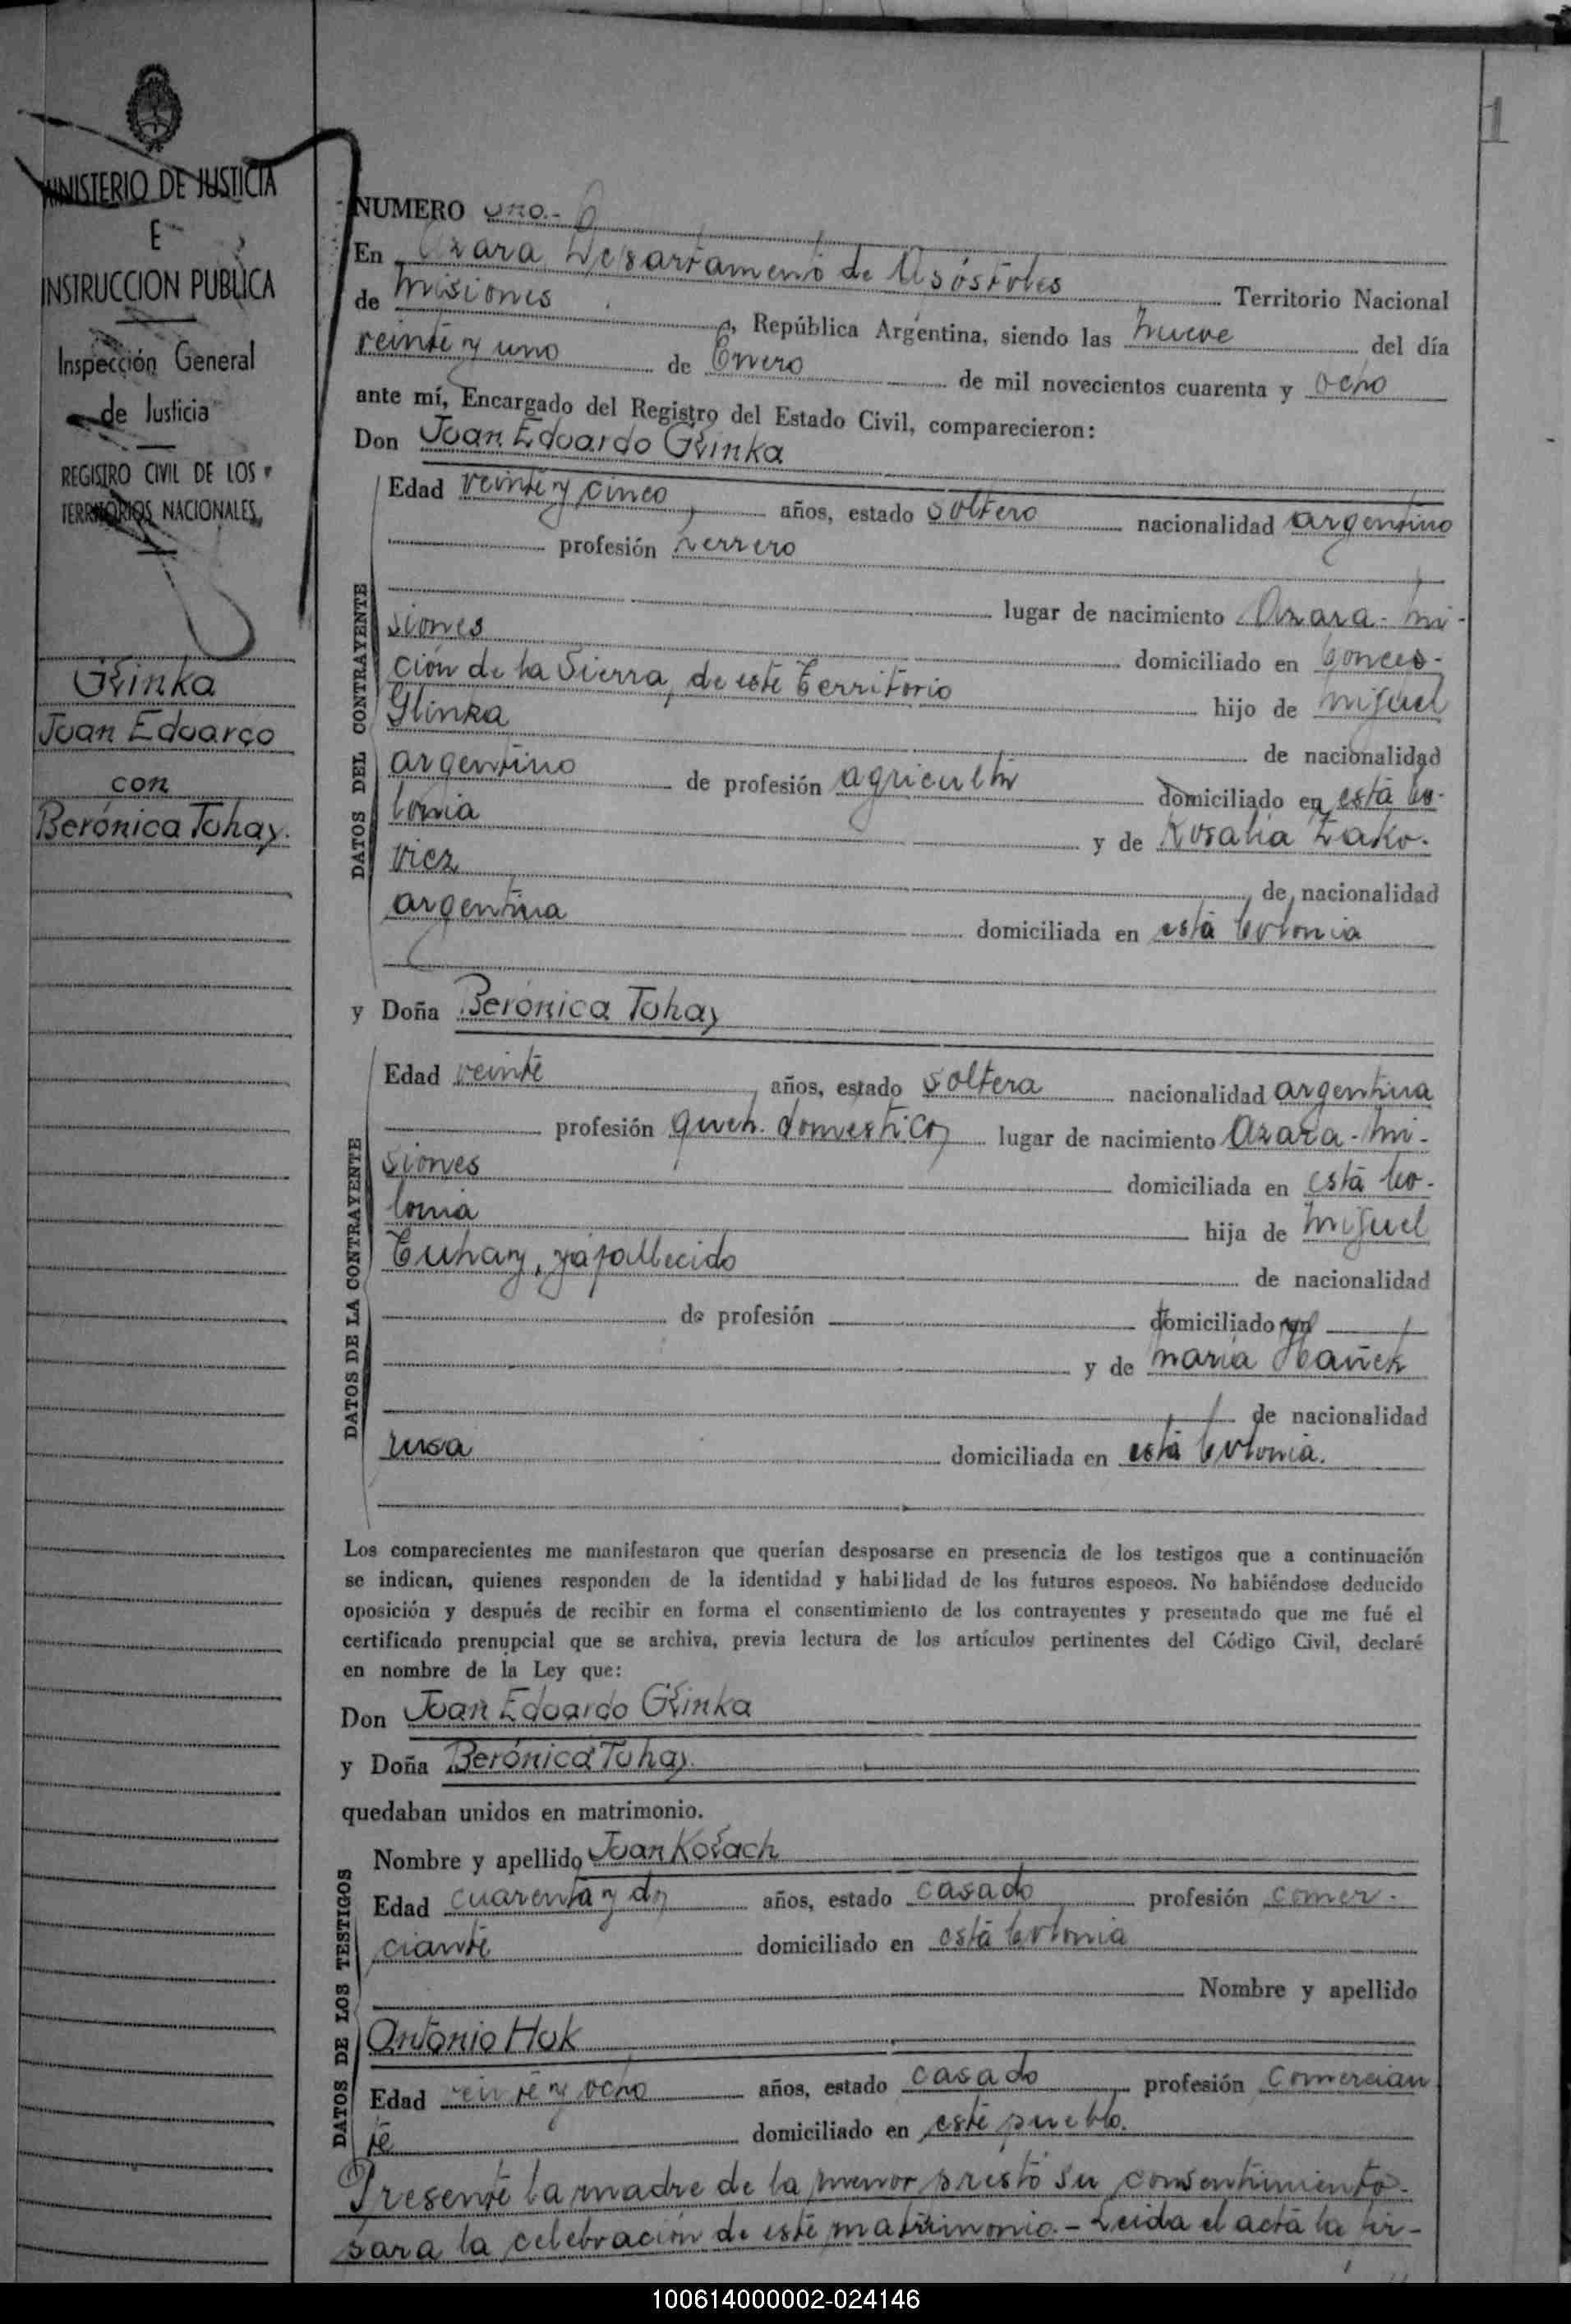 MINISTERIO DE JUSTICIA
E
INSTRUCCION PUBLICA
Inspección General
de Justicia
REGISTRO CIVIL DE LOS
TERRITORIOS NACIONALES
Glinka
Juan Eduardo
con
Berónica Tuhay.
1
NUMERO uno.-
En Azara Departamento de Apóstoles
de Misiones Territorio Nacional
, República Argentina, siendo las nueve del día
veinte y uno de Enero de mil novecientos cuarenta y ocho
ante mí, Encargado del Registro del Estado Civil, comparecieron:
Don Juan Eduardo Glinka
Edad veinte y cinco años, estado soltero nacionalidad argentino
profesión herrero
lugar de nacimiento Azara - Mi-
siones domiciliado en Conces-
ción de la Sierra, de este Territorio hijo de Miguel
Glinka de nacionalidad
argentino de profesión agricultor domiciliado en está Co-
lonia y de Rosalia Zako-
vicz de nacionalidad
argentina domiciliada en está Colonia
y Doña Berónica Tuhay
Edad veinte años, estado soltera nacionalidad argentina
profesión queh. domésticos lugar de nacimiento Azara - Mi-
siones domiciliada en está Co-
lonia hija de Miguel
Tuhay, ya fallecido de nacionalidad
de profesión domiciliado en
y de María
de nacionalidad
rusa domiciliada en está Colonia.
Los comparecientes me manifestaron que querían desposarse en presencia de los testigos que a continuación
se indican, quienes responden de la identidad y habilidad de los futuros esposos. No habiéndose deducido
oposición y después de recibir en forma el consentimiento de los contrayentes y presentado que me fué el
certificado prenupcial que se archiva, previa lectura de los artículos pertinentes del Código Civil, declaré
en nombre de la Ley que:
Don Juan Eduardo Glinka
y Doña Berónica Tuhay.
quedaban unidos en matrimonio.
Nombre y apellido Juan Kolach
Edad cuarenta y dos años, estado casado profesión comer-
ciante domiciliado en está Colonia
Nombre y apellido
Antonio Huk
Edad veinte y ocho años, estado casado profesión Comercian
te domiciliado en este pueblo.
Presente la madre de la menor prestó su consentimiento
para la celebración de este matrimonio.- Leida el acta la fir-
DATOS DEL CONTRAYENTE
DATOS DE LA CONTRAYENTE
DATOS DE LOS TESTIGOS
100614000002-024146